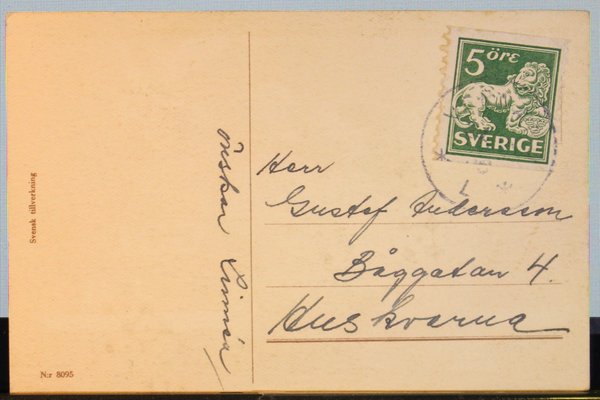 5 öre
SVERIGE
Svensk tillverkning
önskar Linnéa
Herr
Gustaf Andersson
Båggatan 4.
Huskvarna
N:r 8095